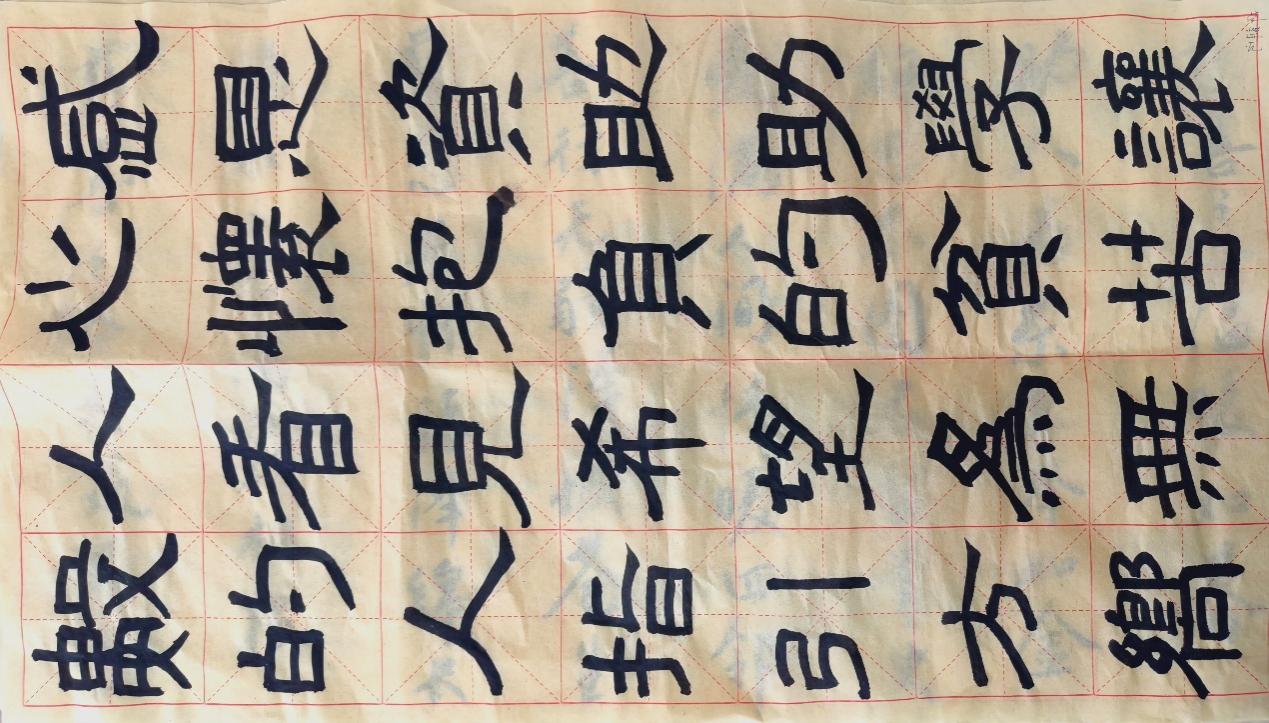 感恩資助助學讓
心懷抱負的貧苦
人看見希望為無
數的人指引方嚮